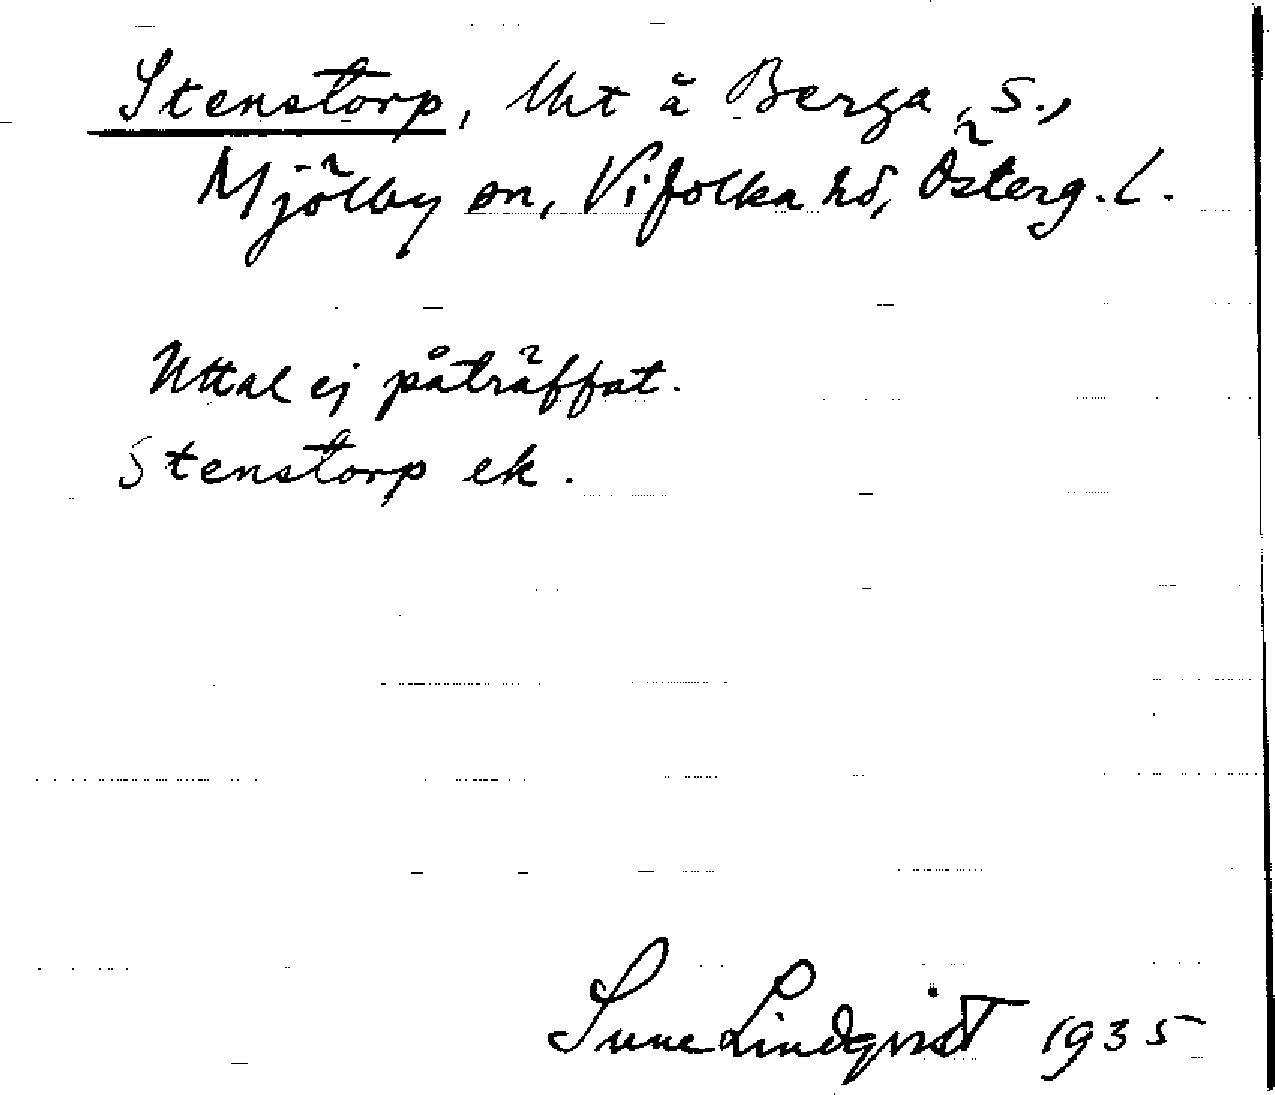 Stenstorp, Uht å Berga, s.,
Mjölby sn, Vifolka hd, Österg. l.
Uttal ej påträffat.
Stenstorp ek.
Sune Lindqvist 1935